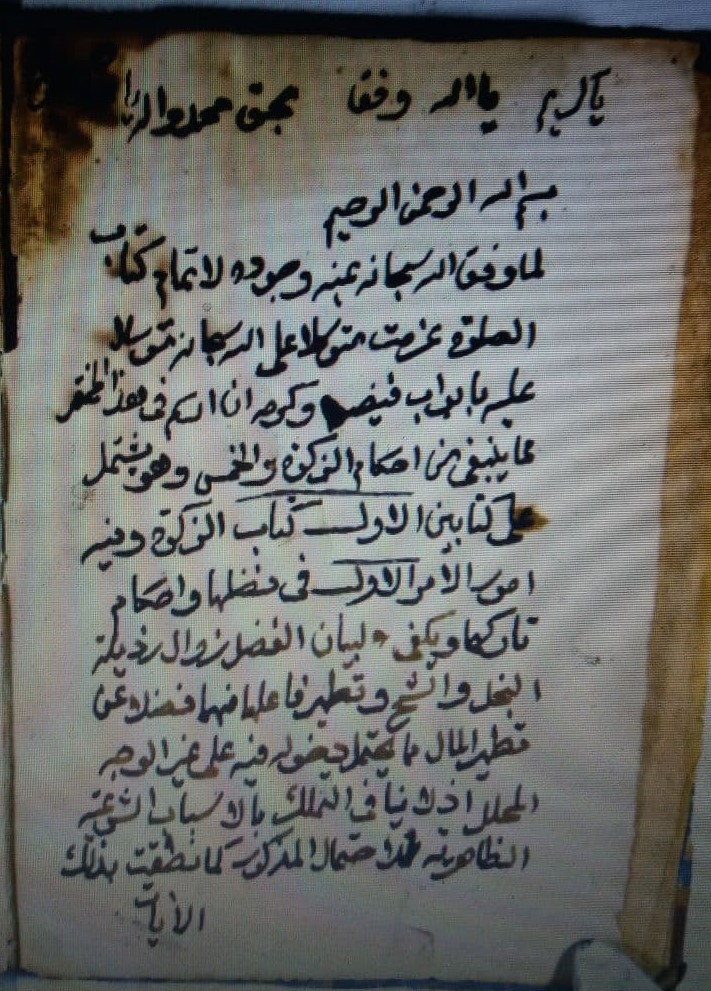 يا كريم يا الله وفقنا بحق محمد واله
بسم الله الرحمن الرحيم
لما وفق الله سبحانه بمنه وجوده لاتمام كتاب
الصلوة عزمت متوكلا على الله سبحانه متوسلا
عليه بابواب فيضه وكرمه ان ارسم في هذا المختصر
ما ينبغي من احكام الزكوة والخمس وهو يشتمل
على كتابين الاول كتاب الزكوة وفيه
امور الامر الاول في فضلها واحكام
تاركها ويكفي لبيان الفضل زوال رذيلة
البخل والشح وتطهر فاعلها منهما فضلا عن
تطهير المال ما يحتمل دخوله فيه على غير الوجه
المحلل اذ لا ينافي التملك بالاسباب الشرعية
الظاهرية للاحتمال المذكور كما نطقت بذلك
الايات